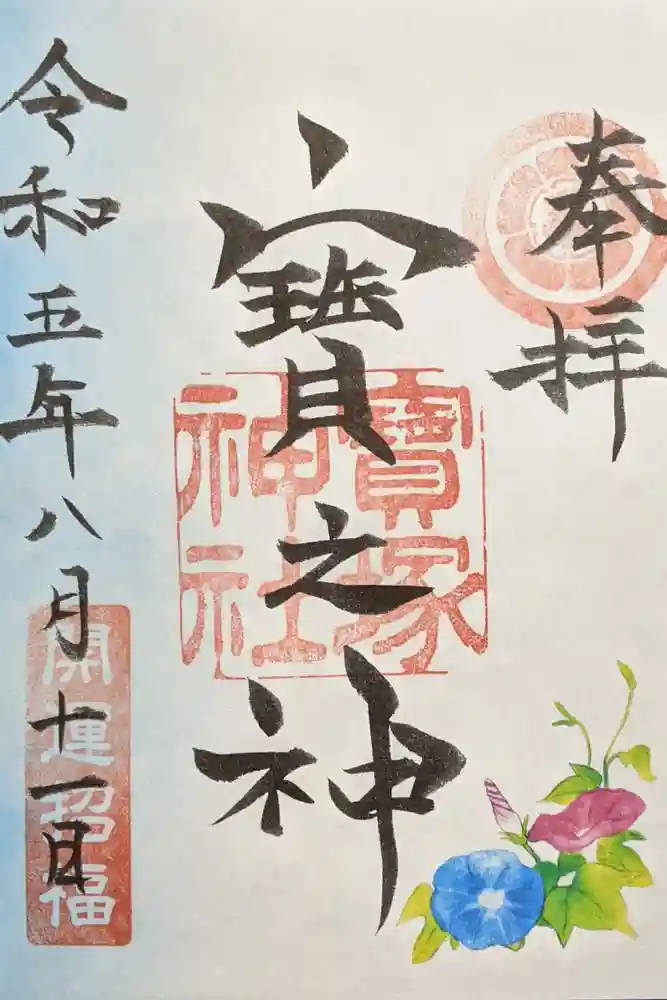 奉拝
寳之神
寳塚
神社
令和五年八月十一日
開運招福